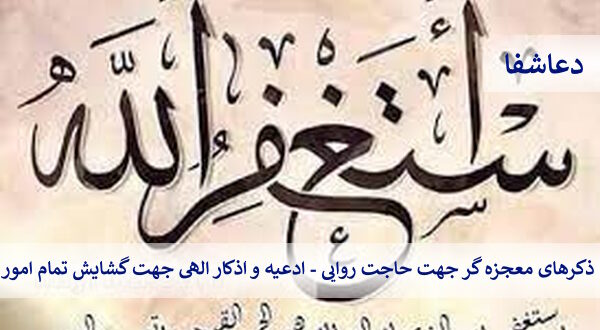 دعاشفا
أستغفر الله
ذکرهای معجزه گر جهت حاجت روایی - ادعیه و اذکار الهی جهت گشایش تمام امور